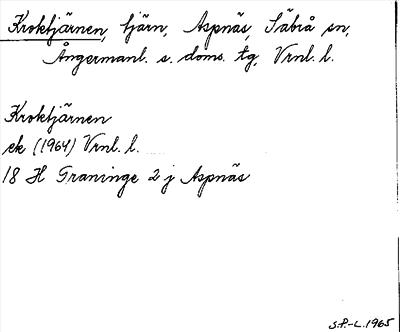 Kroktjärnen, tjärn, Aspnäs, Säbrå sn,
Ångermanl. s. doms. tg, Vrnl. l.
Kroktjärnen
ek (1964) Vrnl. l.
18 H Graninge 2 j Aspnäs
S.P.-L. 1965